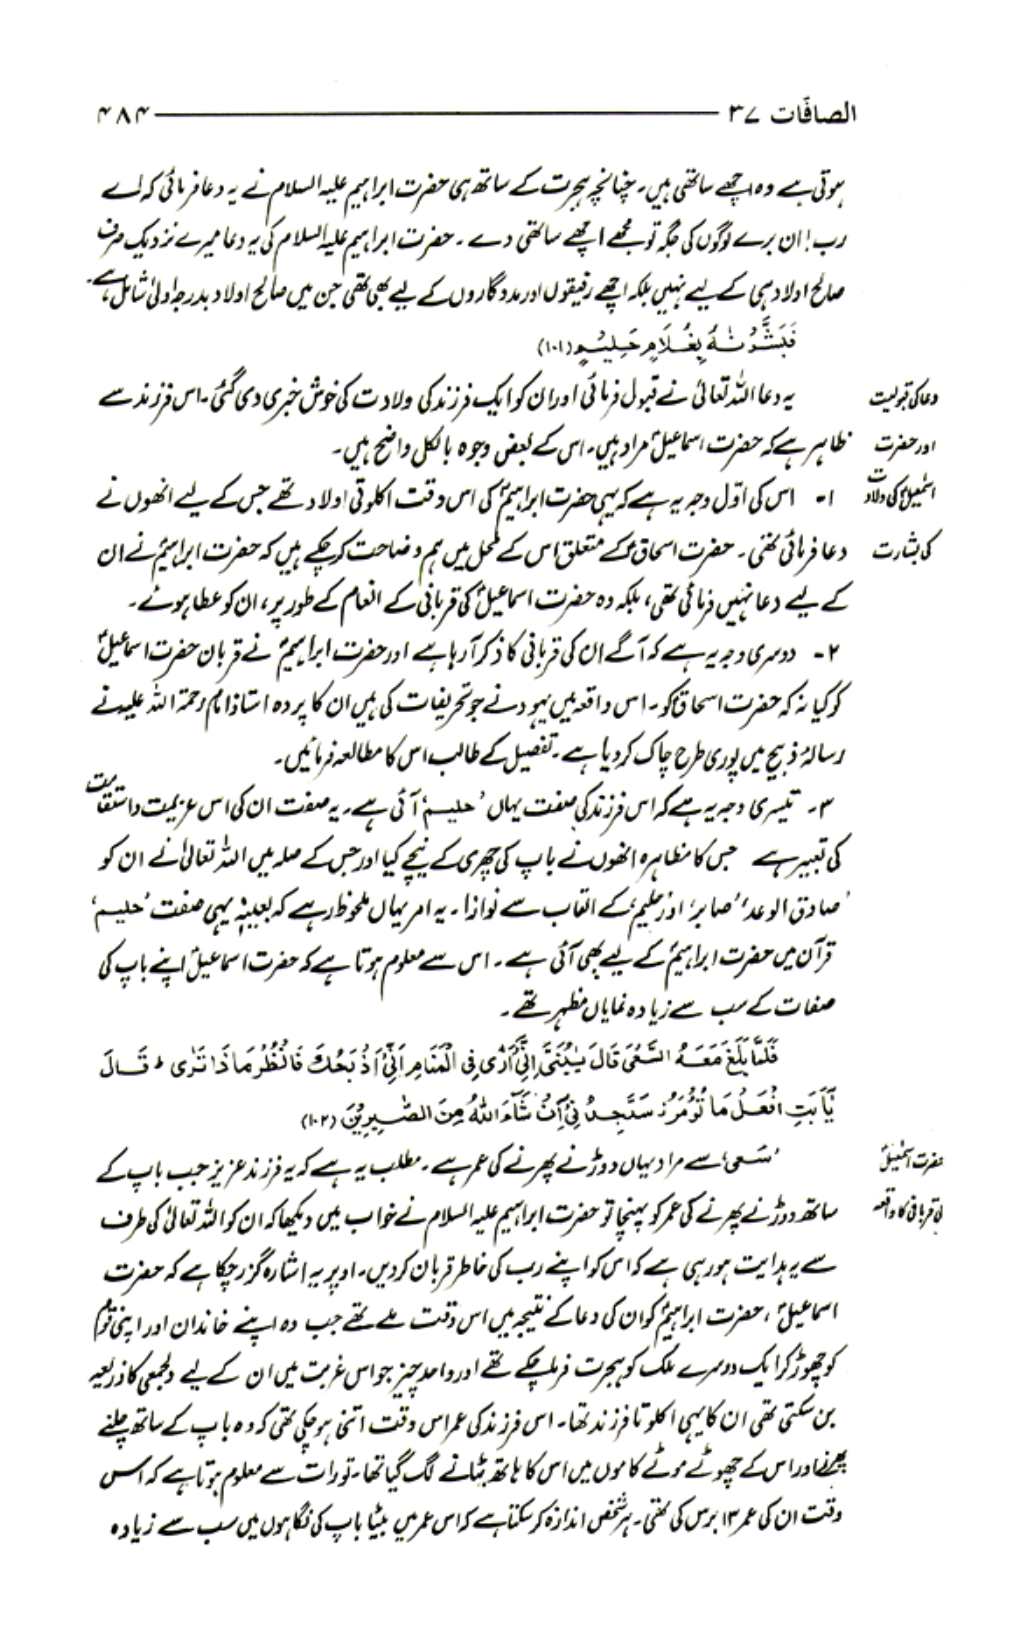 الصافّات ۳۷ ۴۸۴
ہوتی ہے وہ اچھے ساتھی ہیں۔ چنانچہ ہجرت کے ساتھ ہی حضرت ابراہیم علیہ السلام نے یہ دعا فرمائی کہ اے
رب! ان برے لوگوں کی جگہ تو مجھے اچھے ساتھی دے۔ حضرت ابراہیم علیہ السلام کی یہ دعا میرے نزدیک صرف
صالح اولاد ہی کے لیے نہیں بلکہ اچھے رفیقوں اور مددگاروں کے لیے بھی تھی جن میں صالح اولاد بدرجہ اولیٰ شامل ہے۔
فَبَشَّرْنٰهُ بِغُلَامٍ حَلِيْمٍ (۱۰۱)
دعا کی قبولیت
اور حضرت
اسمٰعیلؑ کی ولادت
کی بشارت
یہ دعا اللہ تعالیٰ نے قبول فرمائی اور ان کو ایک فرزند کی ولادت کی خوش خبری دی گئی۔ اس فرزند سے
ظاہر ہے کہ حضرت اسماعیلؑ مراد ہیں۔ اس کے بعض وجوہ بالکل واضح ہیں۔
۱۔ اس کی اوّل وجہ یہ ہے کہ یہی حضرت ابراہیمؑ کی اس وقت اکلوتی اولاد تھے جس کے لیے انھوں نے
دعا فرمائی تھی۔ حضرت اسحاقؑ کے متعلق اس کے محل میں ہم وضاحت کر چکے ہیں کہ حضرت ابراہیمؑ نے ان
کے لیے دعا نہیں فرمائی تھی، بلکہ وہ حضرت اسماعیلؑ کی قربانی کے انعام کے طور پر، ان کو عطا ہوئے۔
۲۔ دوسری وجہ یہ ہے کہ آگے ان کی قربانی کا ذکر آ رہا ہے اور حضرت ابراہیمؑ نے قربان حضرت اسماعیلؑ
کو کیا نہ کہ حضرت اسحاقؑ کو۔ اس واقعہ میں یہود نے جو تحریفات کی ہیں ان کا پردہ استاذ امام رحمۃ اللہ علیہ نے
رسالۂ ذبیح میں پوری طرح چاک کر دیا ہے۔ تفصیل کے طالب اس کا مطالعہ فرمائیں۔
۳۔ تیسری وجہ یہ ہے کہ اس فرزند کی صفت یہاں ’حلیم‘ آئی ہے۔ یہ صفت ان کی اس عزیمت و استقامت
کی تعبیر ہے جس کا مظاہرہ انھوں نے باپ کی چھری کے نیچے کیا اور جس کے صلہ میں اللہ تعالیٰ نے ان کو
’صادق الوعد‘ ’صابر‘ اور ’حلیم‘ کے القاب سے نوازا۔ یہ امر یہاں ملحوظ رہے کہ بعینہٖ یہی صفت ’حلیم‘
قرآن میں حضرت ابراہیمؑ کے لیے بھی آئی ہے۔ اس سے معلوم ہوتا ہے کہ حضرت اسماعیلؑ اپنے باپ کی
صفات کے سب سے زیادہ نمایاں مظہر تھے۔
فَلَمَّا بَلَغَ مَعَهُ السَّعْيَ قَالَ يٰبُنَيَّ اِنِّيْٓ اَرٰى فِي الْمَنَامِ اَنِّيْٓ اَذْبَحُكَ فَانْظُرْ مَاذَا تَرٰى ؕ قَالَ
يٰٓاَبَتِ افْعَلْ مَا تُؤْمَرُ ز سَتَجِدُنِيْٓ اِنْ شَآءَ اللّٰهُ مِنَ الصّٰبِرِيْنَ (۱۰۲)
حضرت اسمٰعیلؑ
کی قربانی کا واقعہ
’سَعی‘ سے مراد یہاں دوڑنے پھرنے کی عمر ہے۔ مطلب یہ ہے کہ یہ فرزند عزیز جب باپ کے
ساتھ دوڑنے پھرنے کی عمر کو پہنچا تو حضرت ابراہیم علیہ السلام نے خواب میں دیکھا کہ ان کو اللہ تعالیٰ کی طرف
سے یہ ہدایت ہو رہی ہے کہ اس کو اپنے رب کی خاطر قربان کر دیں۔ اوپر یہ اشارہ گزر چکا ہے کہ حضرت
اسماعیلؑ، حضرت ابراہیمؑ کو ان کی دعا کے نتیجہ میں اس وقت ملے تھے جب وہ اپنے خاندان اور اپنی قوم
کو چھوڑ کر ایک دوسرے ملک کو ہجرت فرما چکے تھے اور واحد چیز جو اس غربت میں ان کے لیے دلجمعی کا ذریعہ
بن سکتی تھی ان کا یہی اکلوتا فرزند تھا۔ اس فرزند کی عمر اس وقت اتنی ہو چکی تھی کہ وہ باپ کے ساتھ چلنے
پھرنے اور اس کے چھوٹے موٹے کاموں میں اس کا ہاتھ بٹانے لگ گیا تھا۔ تورات سے معلوم ہوتا ہے کہ اس
وقت ان کی عمر ۱۳ برس کی تھی۔ ہر شخص اندازہ کر سکتا ہے کہ اس عمر میں بیٹا باپ کی نگاہوں میں سب سے زیادہ